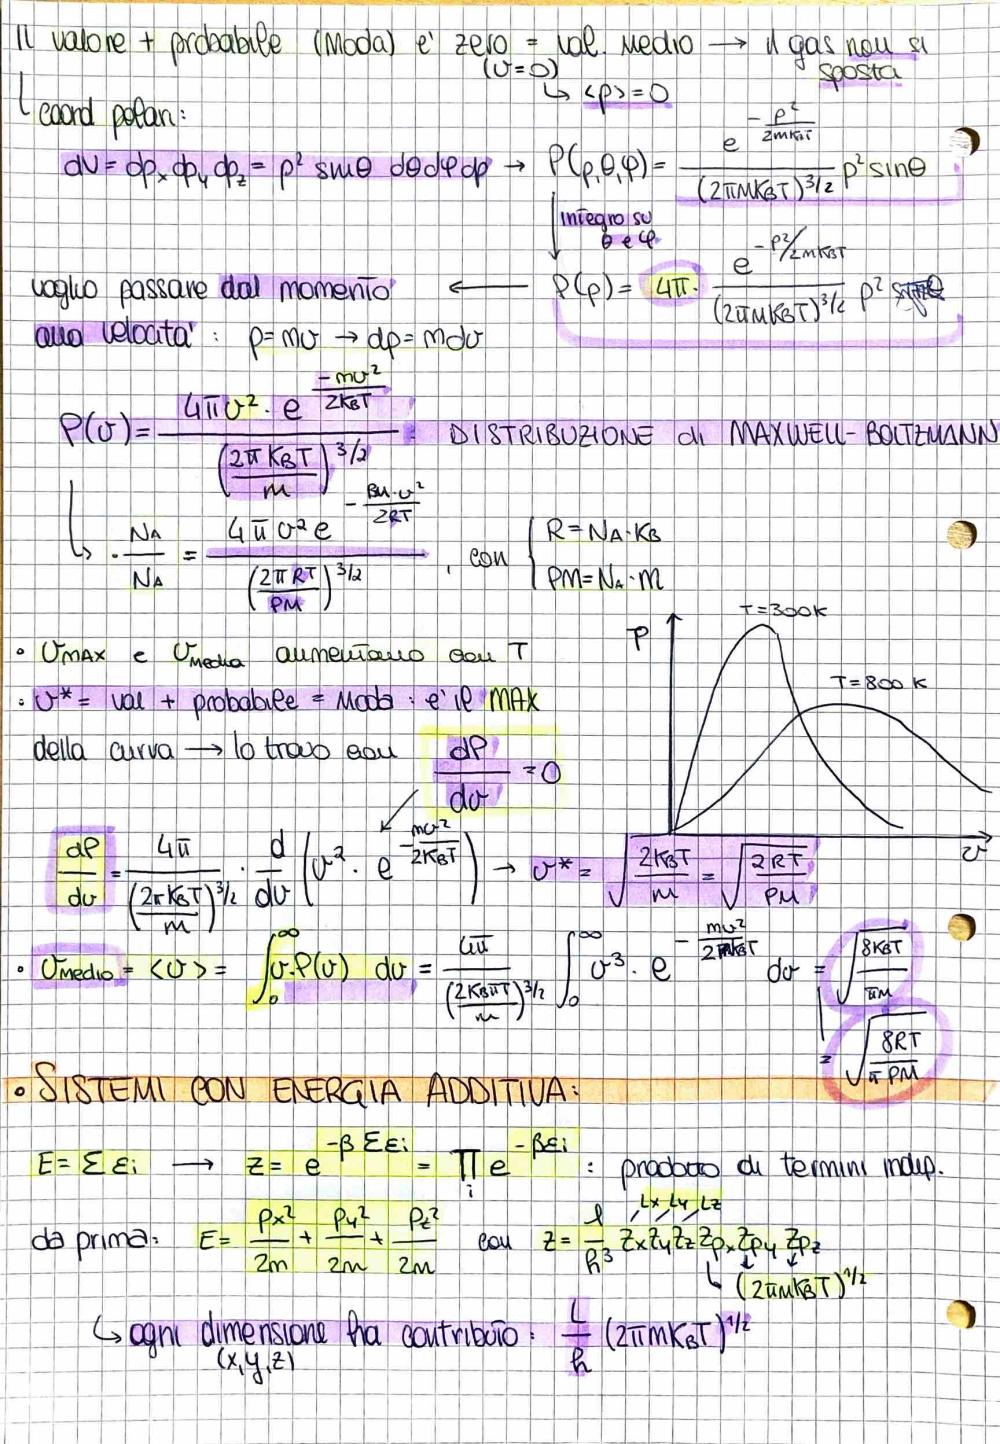 Il valore + probabile (Moda) e' zero = val. medio → il gas non si sposta
(v=0)
↳ <p> = 0
coord polari:
dV = dpx dpy dpz = p² sinθ dθdφdp → P(p,θ,φ) = e^(-p²/2mKBT) / (2πMKBT)^3/2 p² sinθ
integro su θ e φ
voglio passare dal momento ← P(p) = 4π · e^(-p²/2mKBT) / (2πMKBT)^3/2 p²
alla velocita' : p = mv → dp = mdv
P(v) = 4πv² · e^(-mv²/2KBT) / (2πKBT/m)^3/2 DISTRIBUZIONE di MAXWELL-BOLTZMANN
↳ · NA/NA = 4πv² e^(-PM·v²/2RT) / (2πRT/PM)^3/2 , con { R = NA·KB
PM = NA·m
P T=300K
• VMAX e Vmedia aumentano con T
T=800 K
• v* = val + probabile = Moda : e' il MAX
della curva → lo trovo con dP/dv = 0
v
dP/dv = 4π / (2πKBT/m)^3/2 · d/dv (v² · e^(-mv²/2KBT)) → v* = √(2KBT/m) = √(2RT/PM)
• Vmedio = <v> = ∫₀^∞ v·P(v) dv = 4π / (2KBπT/m)^3/2 ∫₀^∞ v³ · e^(-mv²/2KBT) dv = √(8KBT/πm)
= √(8RT/πPM)
• SISTEMI CON ENERGIA ADDITIVA:
E = Σεi → z = e^(-βΣεi) = ∏i e^(-βεi) : prodotto di termini indip.
Lx Ly Lz
da prima: E = px²/2m + py²/2m + pz²/2m con z = 1/h³ ZxZyZz Zpx Zpy Zpz
↳ (2πmKBT)^1/2
↳ ogni dimensione ha contributo : L/h (2πmKBT)^1/2
(x,y,z)